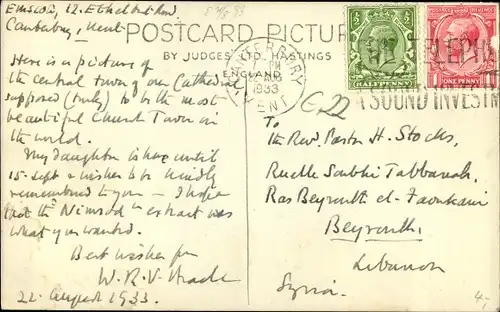 12. Ethelbert Road
Canterbury, Kent
POSTCARD
BY JUDGES' LTD., HASTINGS
ENGLAND
Here is a picture of
the central Tower of our Cathedral
supposed (truly) to be the most
beautiful Church Tower in
the world.
My daughter is here until
15. Sept & wishes to be kindly
remembered to you — I hope
that the "Nimrod" extract was
what you wanted.
Best wishes from
W.R.V.
22. August 1933.
CANTERBURY
PM
1933
KENT
HALFPENNY
ONE PENNY
A SOUND INVESTM
G.22
To
The Rev. Pastor H. Stocks,
Ruelle Saubhi Tabbarah,
Ras Beyrouth el-Faoukani
Beyrouth,
Lebanon
Syria.
4,-